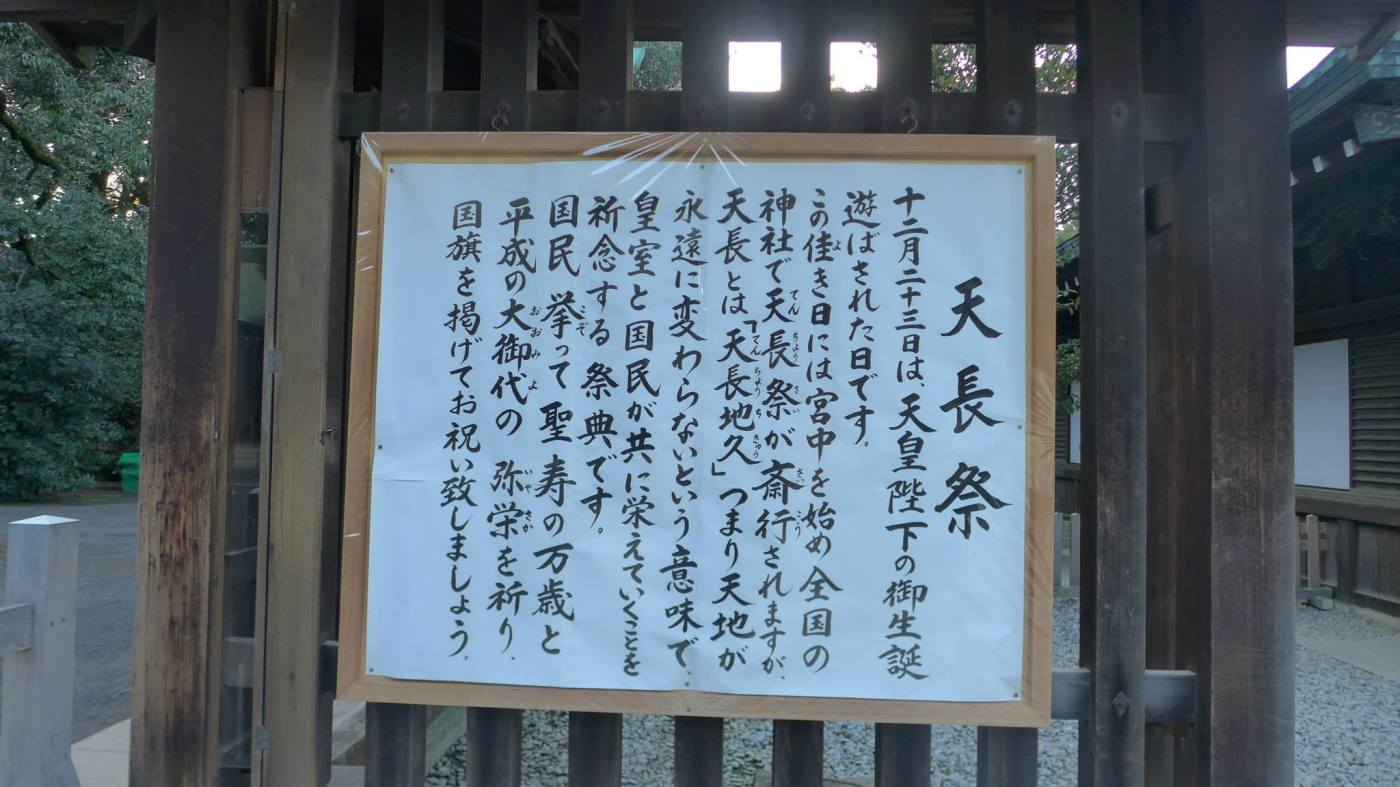 天長祭
十二月二十三日は、天皇陛下の御生誕
遊ばされた日です。
この佳き日には宮中を始め全国の
神社で天長祭が斎行されますが、
天長とは「天長地久」つまり天地が
永遠に変わらないという意味で、
皇室と国民が共に栄えていくことを
祈念する祭典です。
国民 挙って 聖寿の万歳と
平成の大御代の 弥栄を祈り、
国旗を掲げてお祝い致しましょう。